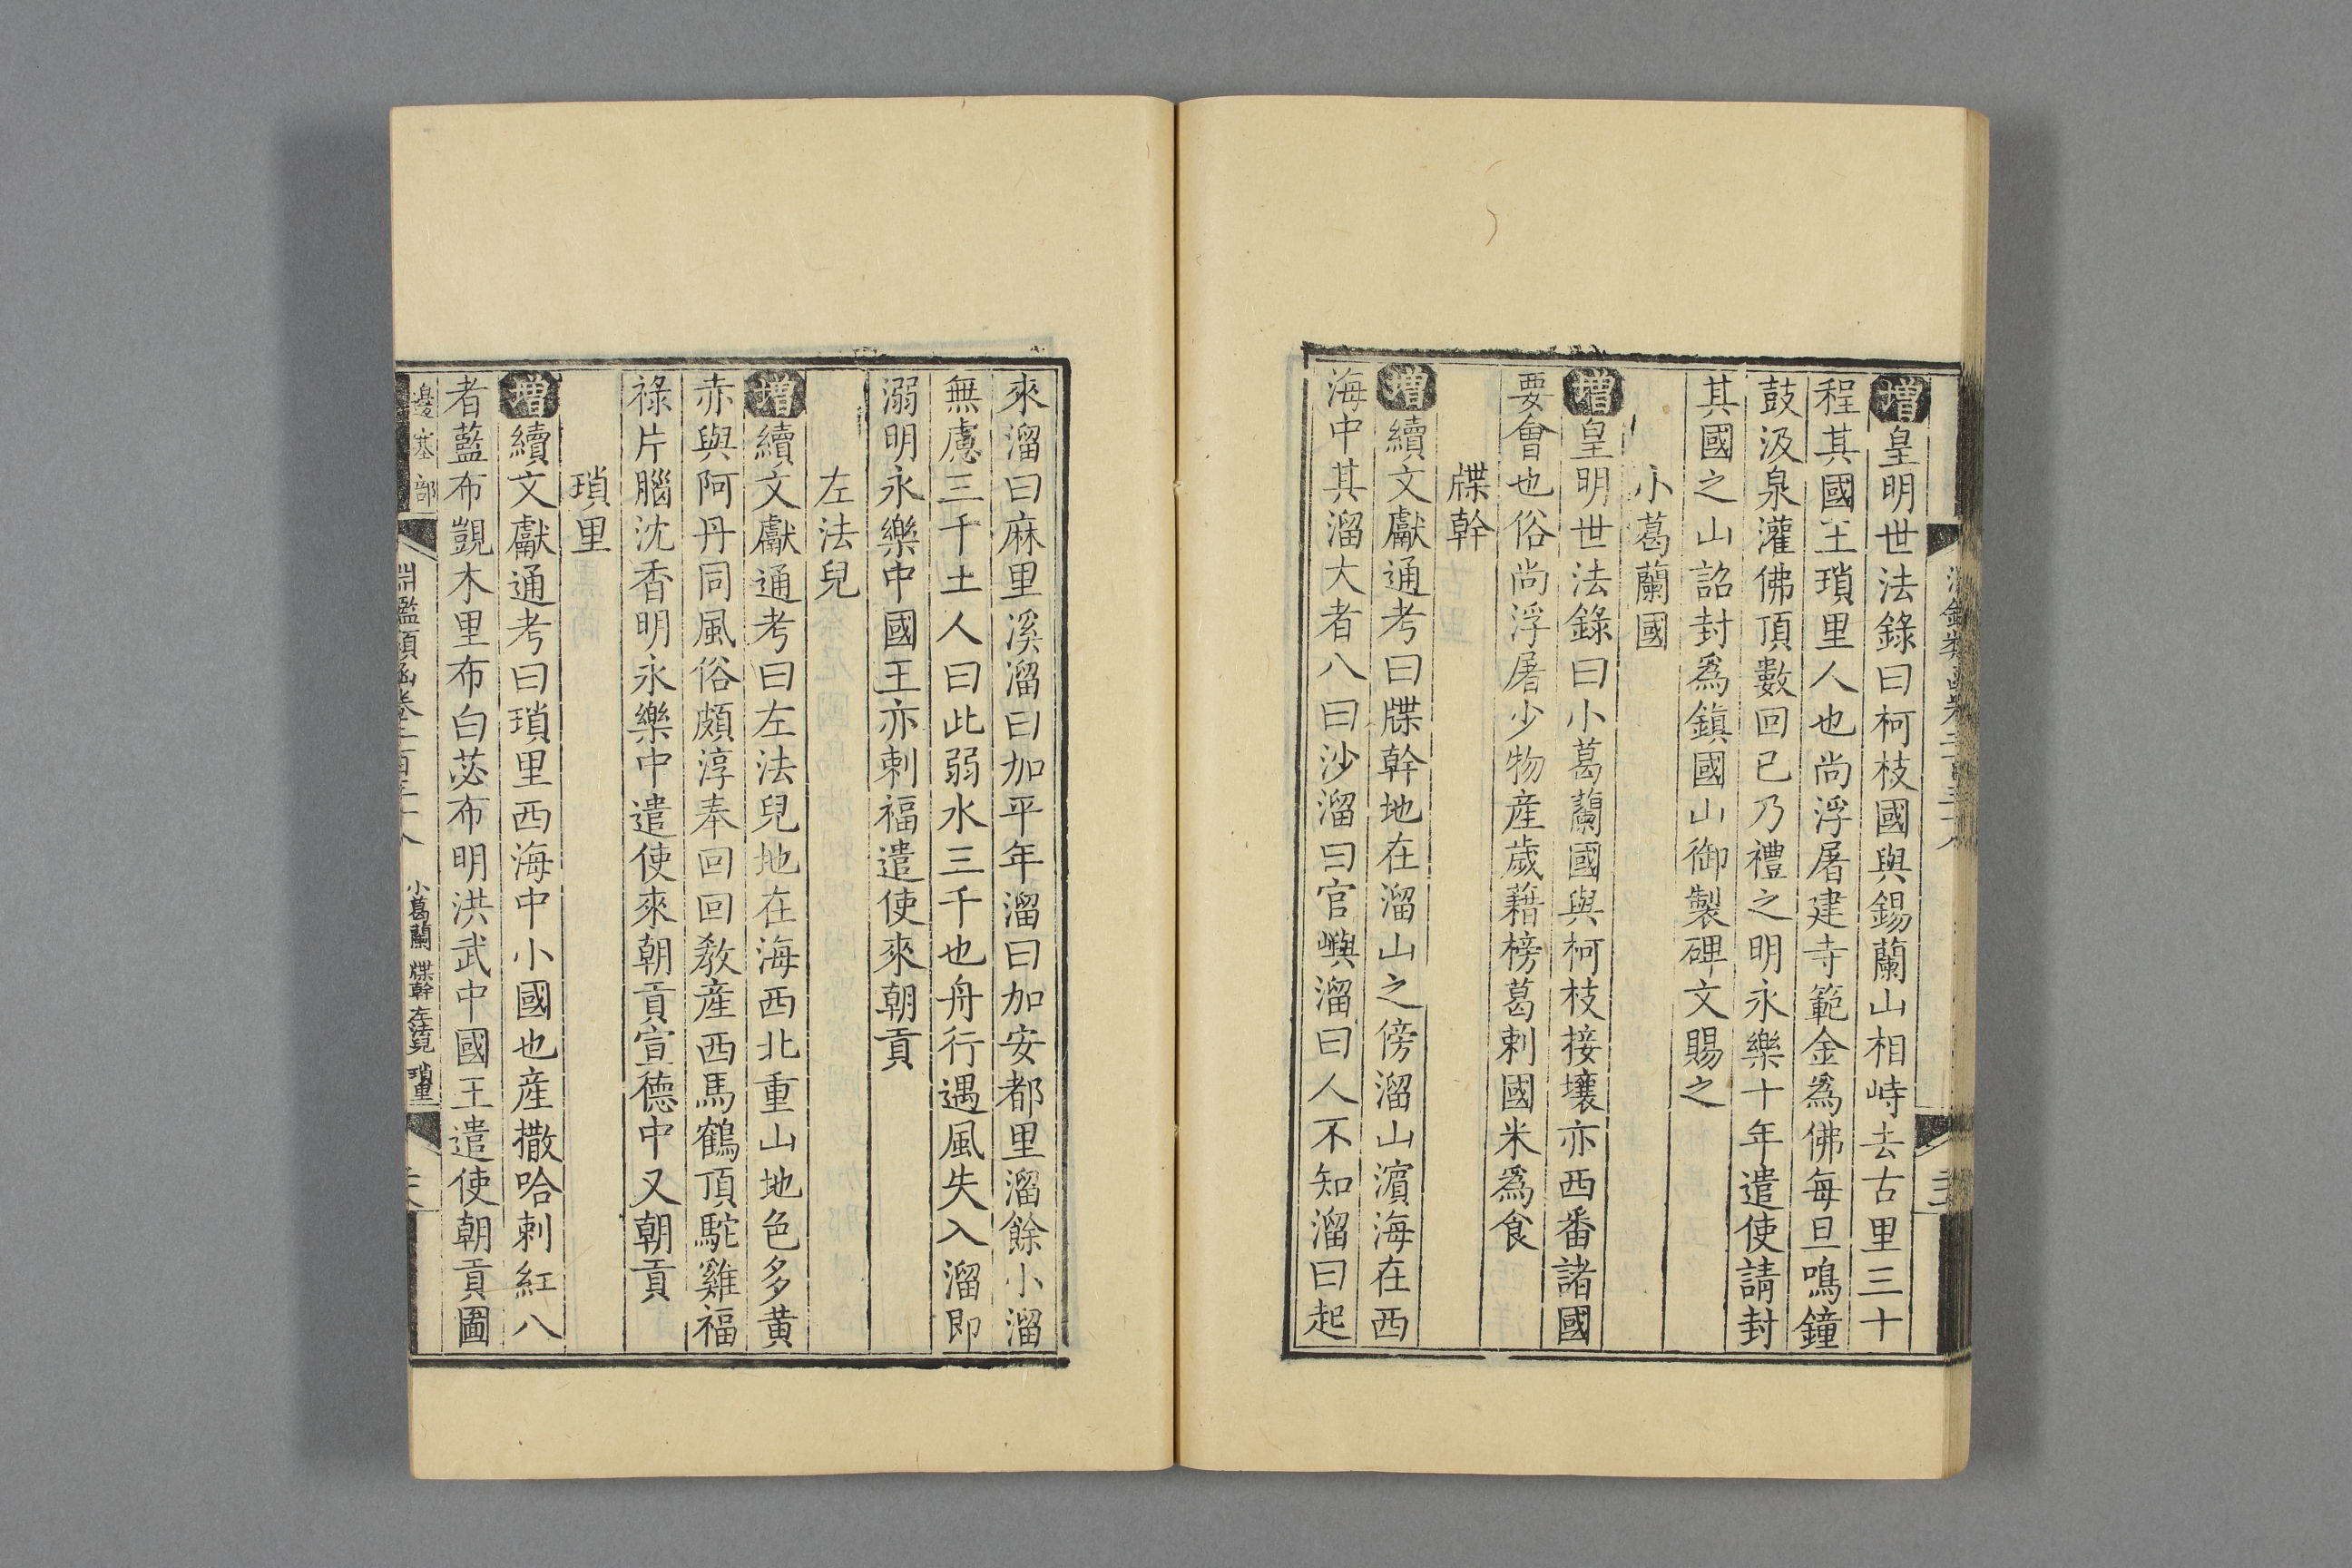 增皇明世法錄曰柯枝國與錫蘭山相峙去古里三十
程其國王瑣里人也尚浮屠建寺範金爲佛每旦鳴鐘
鼓汲泉灌佛頂數回已乃禮之明永樂十年遣使請封
其國之山詔封爲鎮國山御製碑文賜之
小葛蘭國
增皇明世法錄曰小葛蘭國與柯枝接壤亦西番諸國
要會也俗尚浮屠少物産歲藉榜葛剌國米爲食
牒幹
增續文獻通考曰牒幹地在溜山之傍溜山濵海在西
海中其溜大者八曰沙溜曰官嶼溜曰人不知溜曰起
來溜曰麻里溪溜曰加平年溜曰加安都里溜餘小溜
無慮三千土人曰此弱水三千也舟行遇風失入溜即
溺明永樂中國王亦剌福遣使來朝貢
左法兒
增續文獻通考曰左法兒地在海西北重山地色多黄
赤與阿丹同風俗頗淳奉回回敎産西馬鶴頂駝雞福
祿片腦沈香明永樂中遣使來朝貢宣德中又朝貢
瑣里
增續文獻通考曰瑣里西海中小國也産撒哈剌紅八
者藍布覬木里布白苾布明洪武中國王遣使朝貢圖
邊塞部 淵鑑類函卷二百三十八 小葛蘭 牒幹 左法兒 瑣里